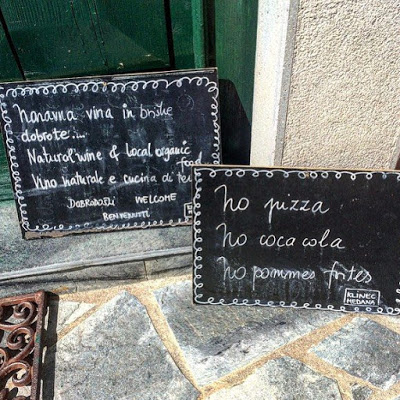 naravna vina in briške
dobrote....
Natural wine & local organic
food
Vino naturale e cucina di te
DOBRODOŠLI WELCOME
BENVENUTI
No pizza
No coca cola
No pommes frites
KLINEC
MEDANA